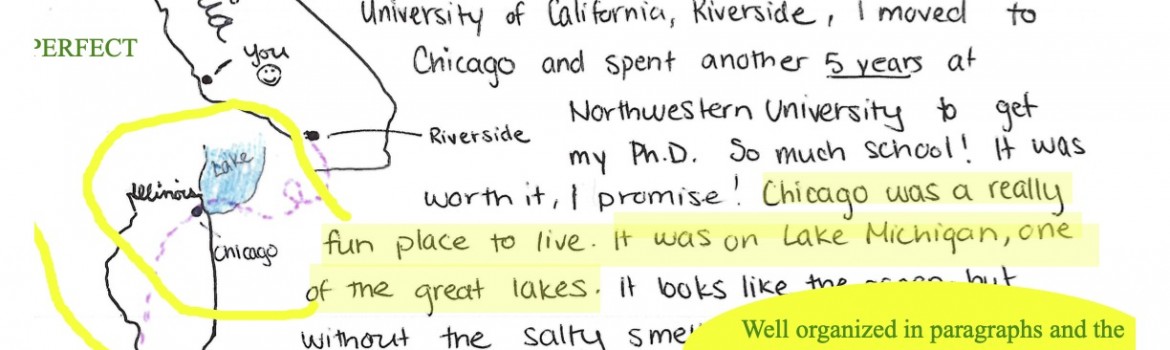 University of California, Riverside, I moved to
PERFECT
you
Chicago and spent another 5 years at
Northwestern University to get
Riverside
my Ph.D. So much school! It was
Lake
Illinois
worth it, I promise! Chicago was a really
Chicago
fun place to live. It was on Lake Michigan, one
of the great lakes. it looks like the ocean but
without the salty
Well organized in paragraphs and the